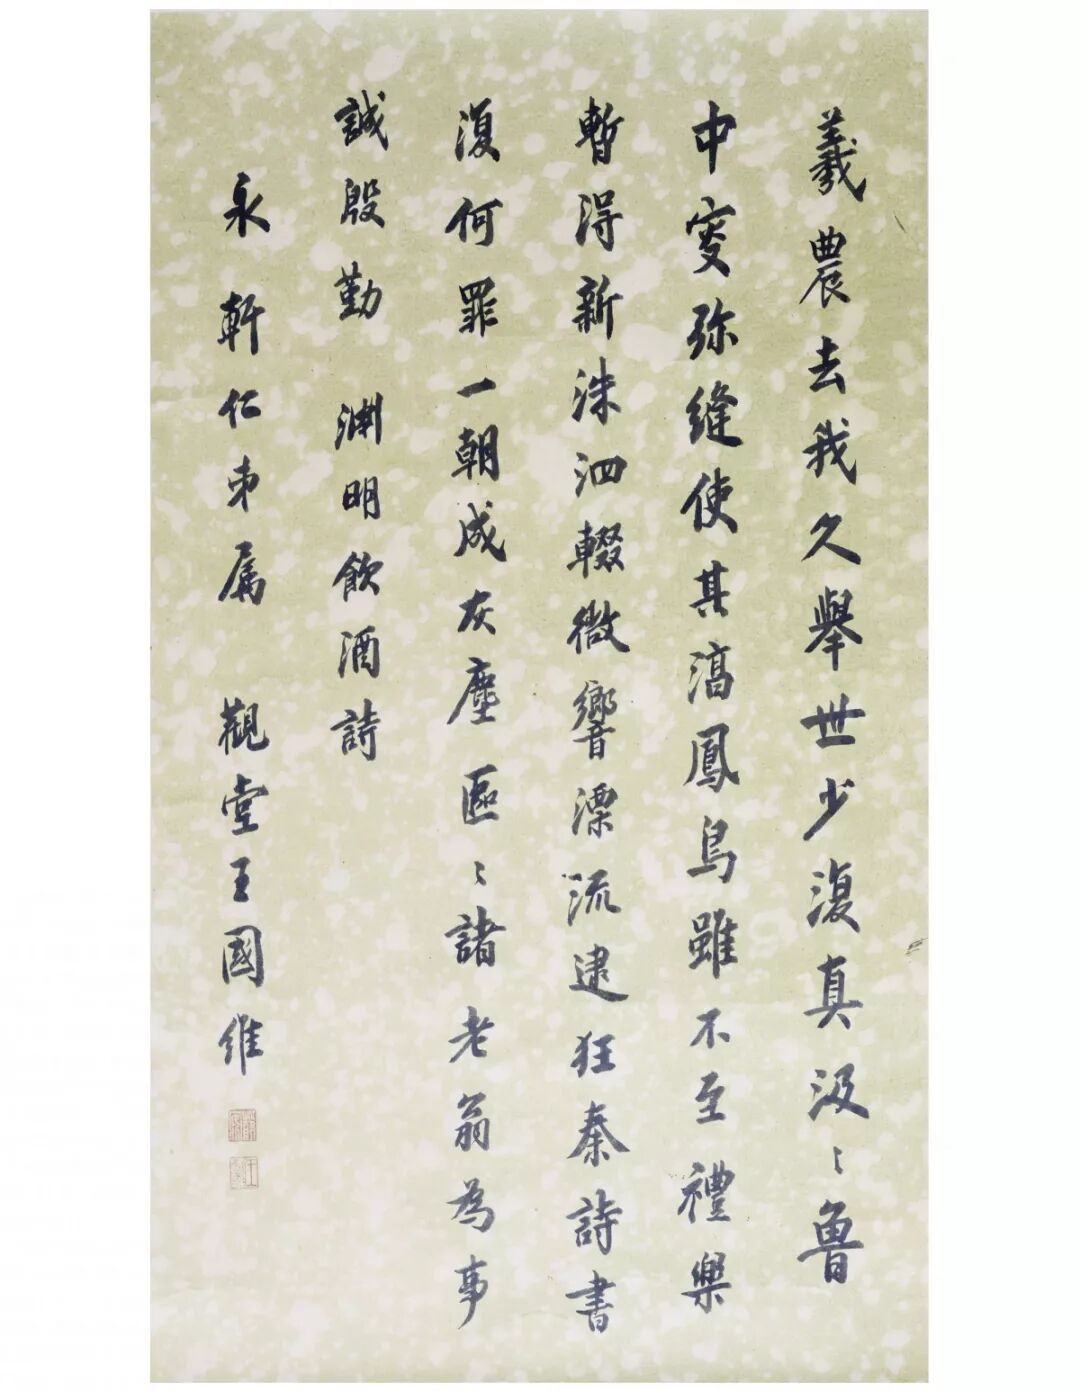 羲農去我久舉世少復真汲〻魯
中叟弥縫使其淳鳳鳥雖不至禮樂
暫得新洙泗輟微響漂流逮狂秦詩書
復何罪一朝成灰塵區〻諸老翁為事
誠殷勤 淵明飲酒詩
永軒仁弟属 觀堂王國維